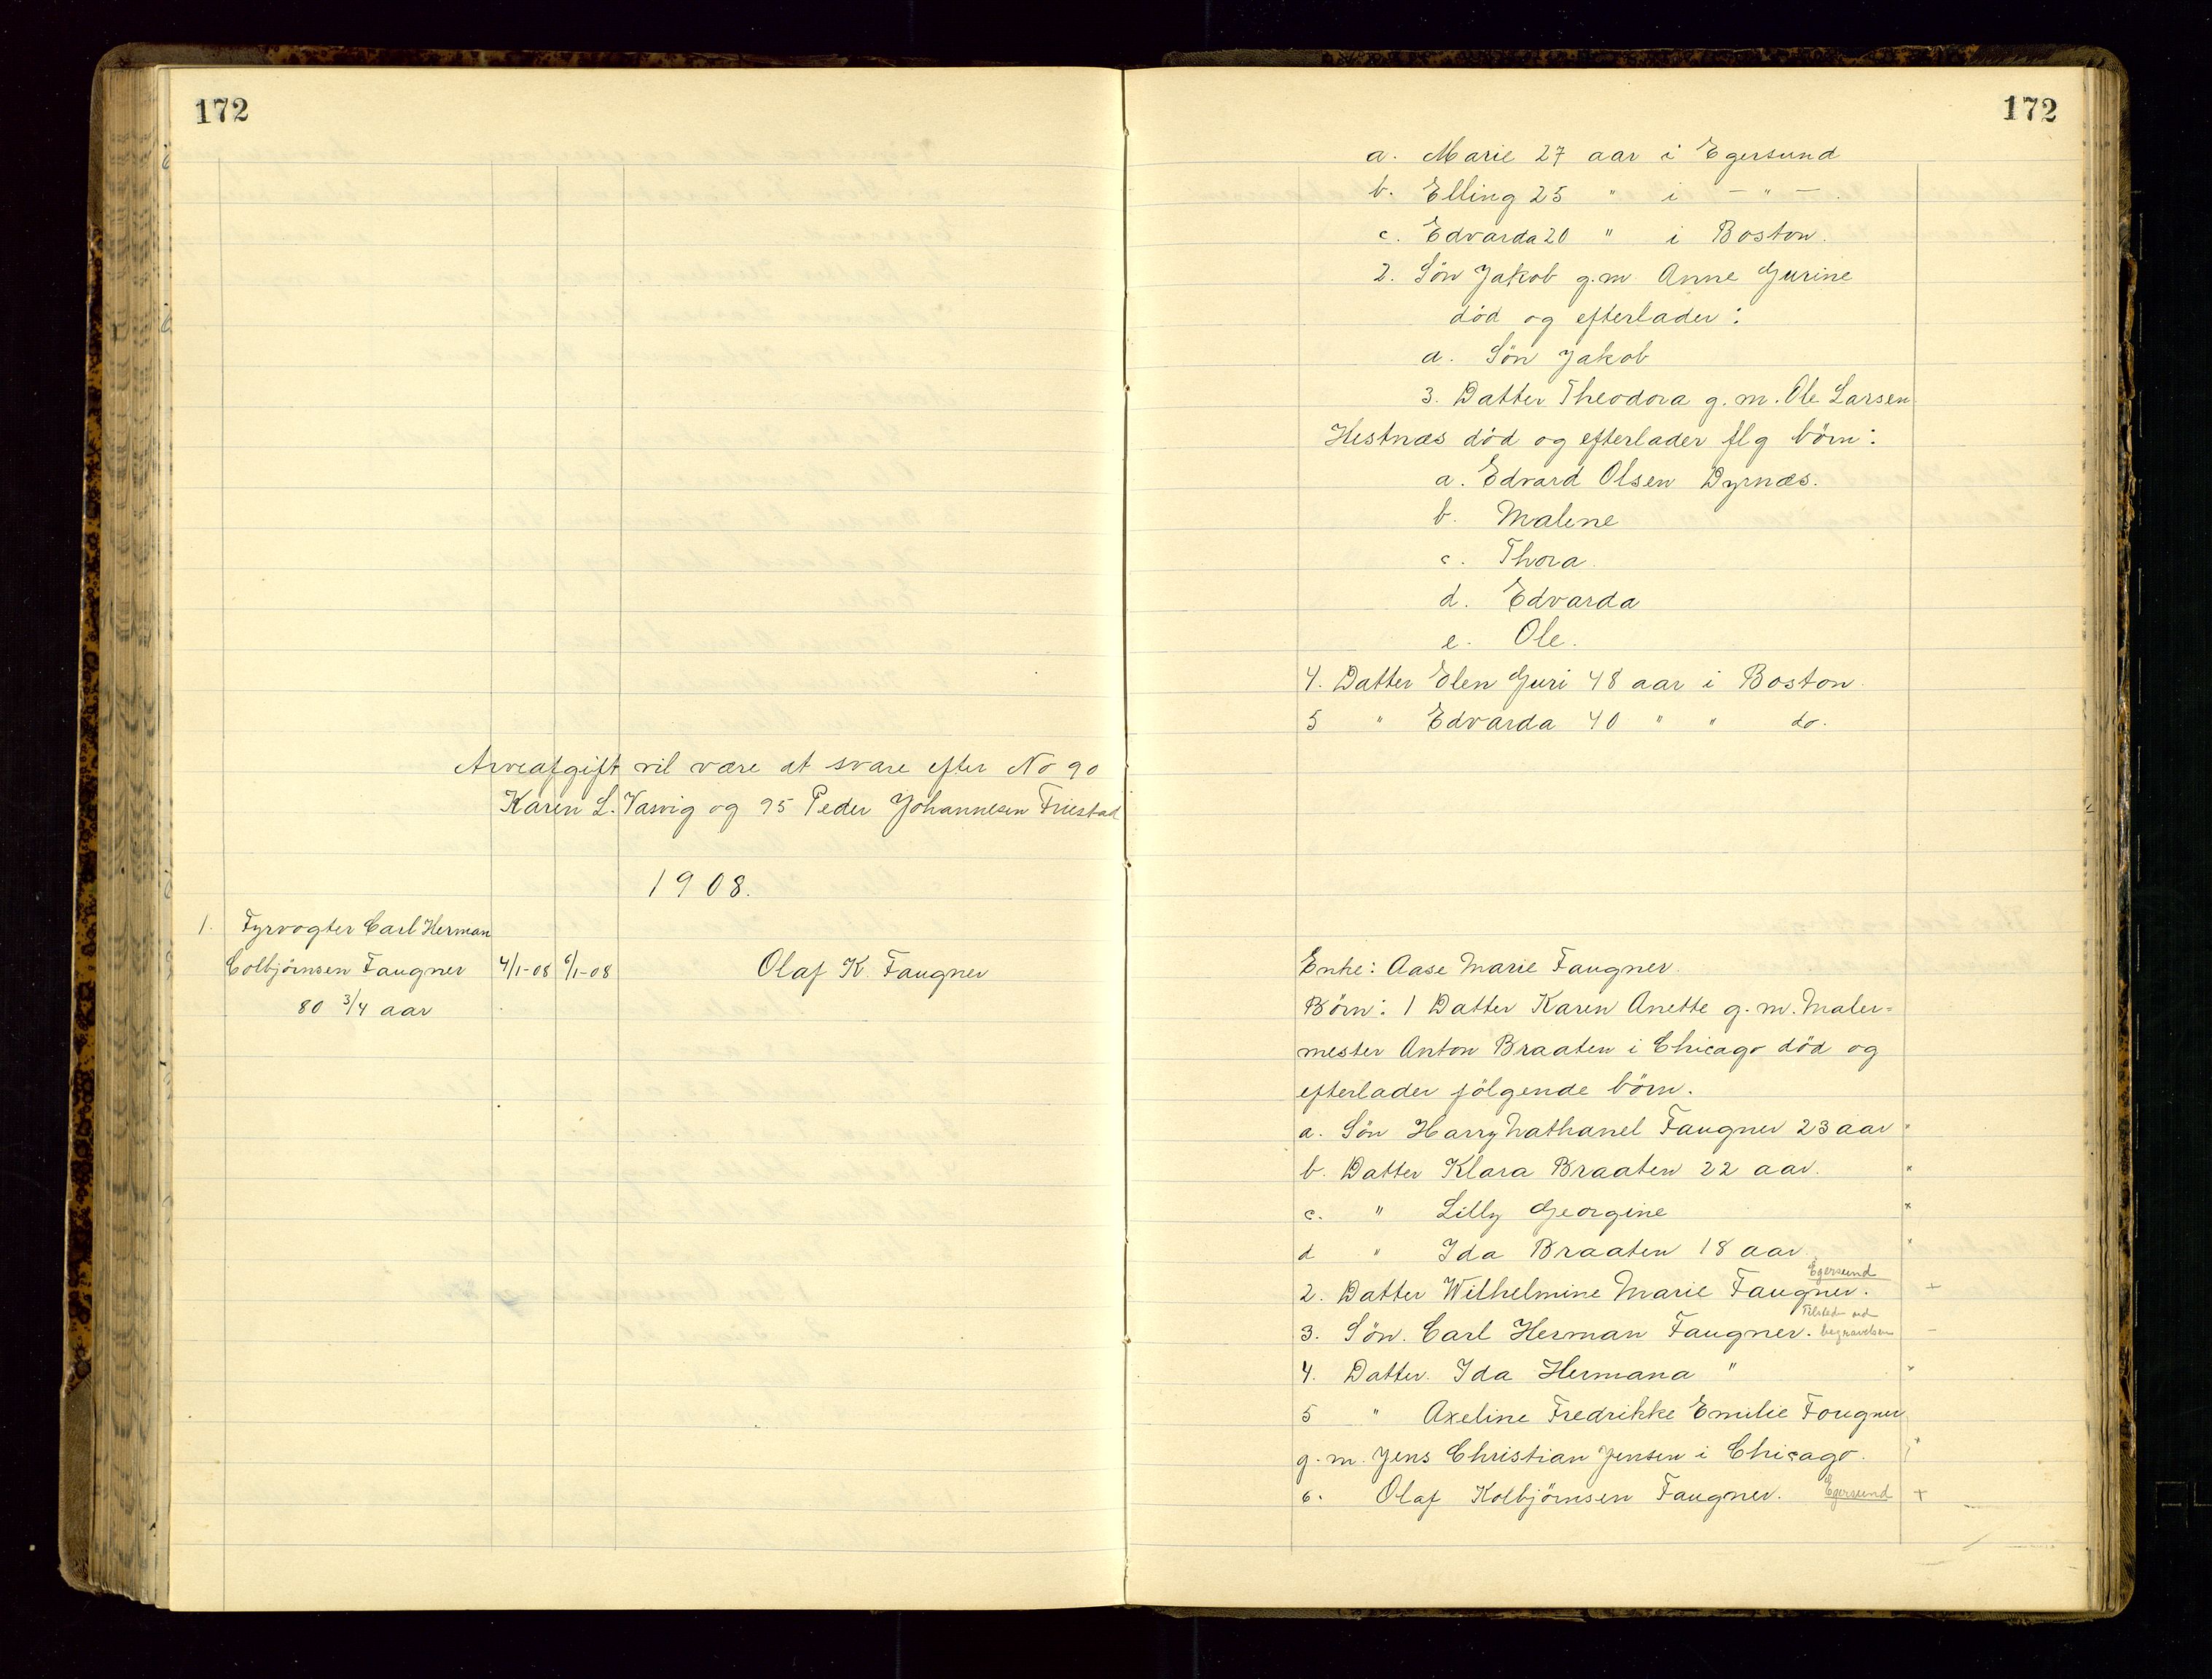 172
Arveafgift vil være at svare efter No 90
Karen L. Vasvig og 95 Peder Johannesen Friestad
1908.
1. Fyrvogter Carl Herman
Colbjörnsen Faugner 4/1-08 6/1-08 Olaf K. Faugner
80 3/4 aar
172
a. Marie 27 aar i Egersund
b. Elling 25 " i — " —
c. Edvarda 20 " i Boston.
2. Sön Jakob g.m. Anne Gurine
död og efterlader:
a. Sön Jakob
3. Datter Theodora g. m. Ole Larsen
Hestnæs död og efterlader flg börn:
a. Edvard Olsen Dyrnæs.
b. Malene
c. Thora.
d. Edvarda
e. Ole.
4. Datter Elen Guri 48 aar i Boston.
5 " Edvarda 40 " " do.
Enke: Aase Marie Faugner.
Börn: 1 Datter Karen Anette g. m. Maler=
mester Anton Braaten i Chicago död og
efterlader fölgende börn.
a. Sön Harry Nathanel Faugner 23 aar ×
b. Datter Klara Braaten 22 aar. ×
c. " Lilly Georgine ×
d " Ida Braaten 18 aar. ×
Egersund
2. Datter Wilhelmine Marie Faugner. +
Tilstede ved
3. Sön. Carl Herman Faugner. begravelsen –
4. Datter. Ida Hermana " ×
5 " Axeline Fredrikke Emilie Fougner
g. m. Jens Christian Jensen i Chicago.
6. Olaf Kolbjörnsen Faugner. Egersund +